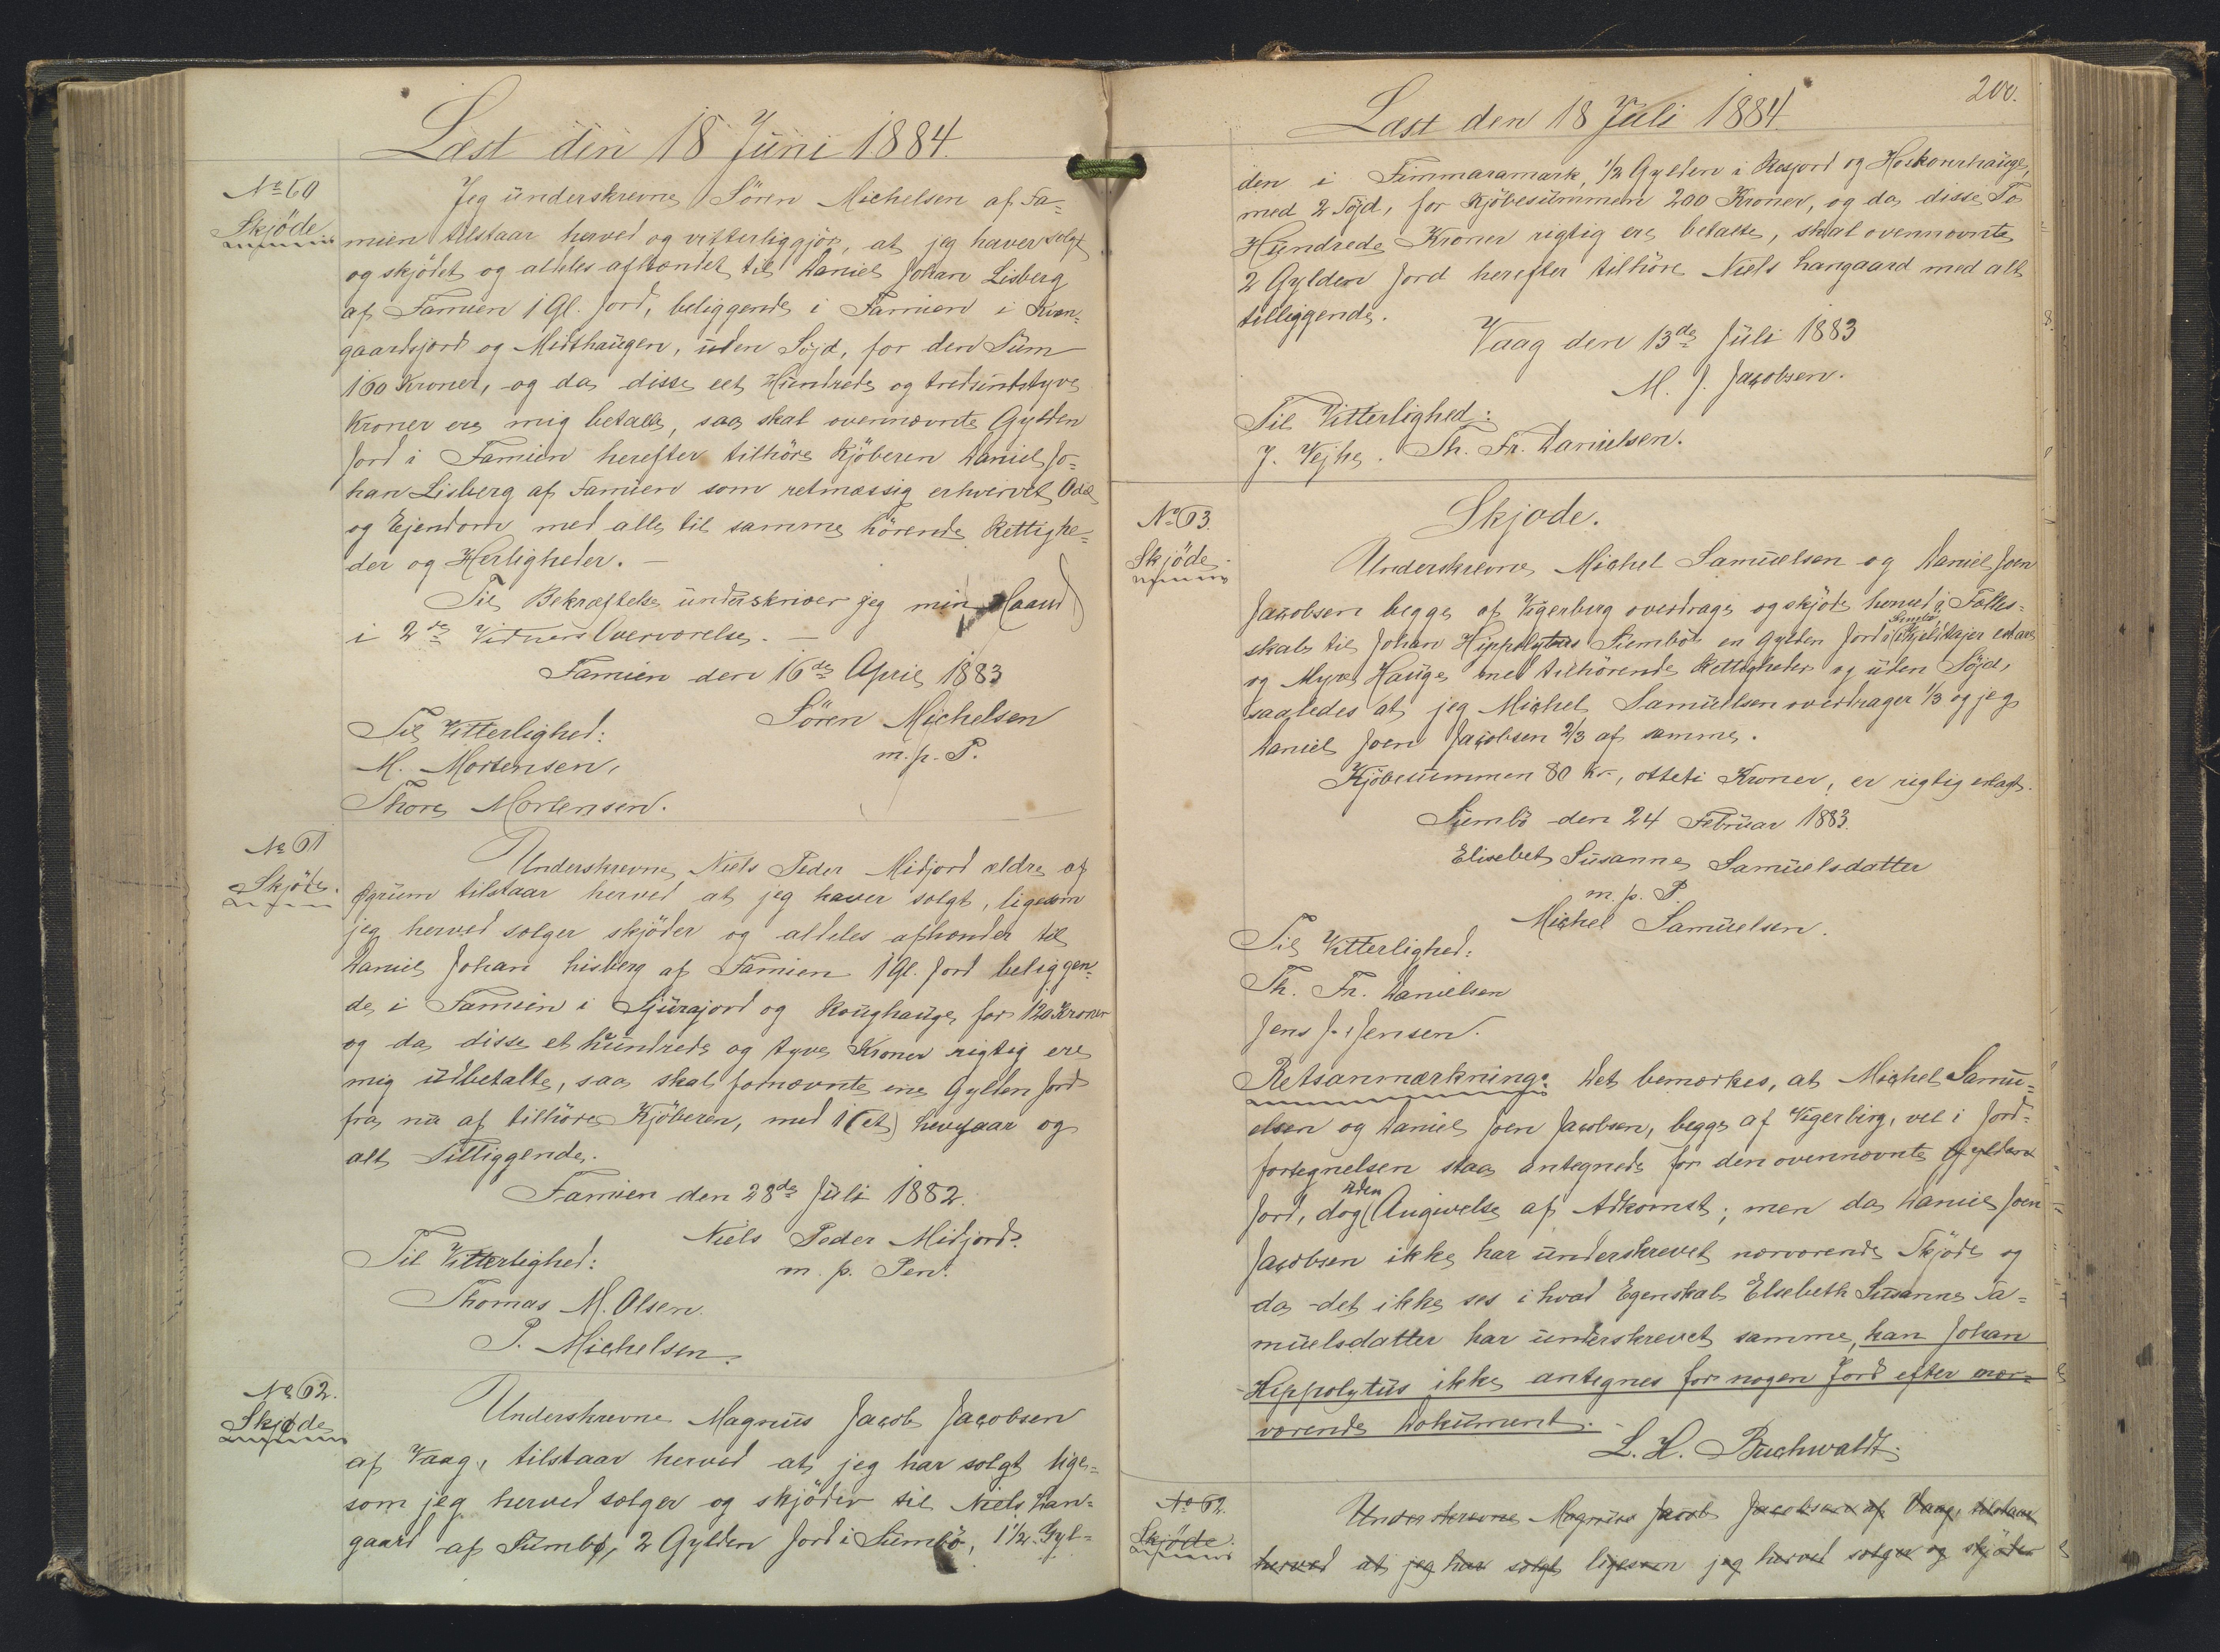 Læst den 18 Juni 1884.
No 60
Skjöde
Jeg underskrevne Sören Michelsen af Fa=
mien tilstaar herved og vitterliggjör, at jeg haver solgt
og skjödet og aldeles afhændet til Daniel Johan Lisberg
af Famien 1 Gl. Jord, beliggende i Famien i Kvan=
gaardsjord og Midthaugen, uden Söjd, for den Sum
160 Kroner, og da disse eet Hundrede og tredsindstyve
Kroner ere mig betalte, saa skal ovennævnte Gylden
Jord i Famien herefter tilhöre Kjöberen Daniel Jo=
han Lisberg af Famien som retmæssig erhvervet Odel
og Ejendom med alle til samme hörende Rettighe=
der og Herligheder. —
Til Bekræftelse underskriver jeg min Haand
i 2de Vidners Overværelse. —
Famien den 16de April 1883
Sören Michelsen
m. p. P.
Til Vitterlighed:
M. Mortensen,
Thore Mortensen.
No 61
Skjöde.
Underskrevne Niels Peder Midjord ældre af
Øgrum tilstaar herved at jeg haver solgt, ligesom
jeg herved sælger skjöder og aldeles afhænder til
Daniel Johan Lisberg af Famien 1 Gl. Jord beliggen=
de i Famien i Sjurajord og Roughauge for 120 Kroner
og da disse et hundrede og tyve Kroner rigtig ere
mig udbetalte, saa skal fornævnte ene Gylden Jord
fra nu af tilhöre Kjöberen, med 1 (et) og
alt Tilliggende.
Famien den 28de Juli 1882.
Niels Peder Midjord.
m. p. Pen.
Til Vitterlighed:
Thomas M. Olsen.
P. Michelsen.
No 62.
Skjøde
Underskrevne Magnus Jacob Jacobsen
af Vaag, tilstaar herved at jeg har solgt lige=
som jeg herved sælger og skjöder til Niels Lan=
gaard af Sumbø, 2 Gylden Jord i Sumbö, 1 1/2 Gyl=
200.
Læst den 18 Juli 1884.
den i Timmaramark, 1/2 Gylden i Resjord og
med 2 Söjd, for Kjöbesummen 200 Kroner, og da disse To
Hundrede Kroner rigtig ere betalte, skal ovennævnte
2 Gylden Jord herefter tilhöre Niels Langaard med alt
tilliggende.
Vaag den 13de Juli 1883
M. J. Jacobsen.
Til Vitterlighed:
J. Vejhe. Th. Fr. Danielsen.
No 63.
Skjöde
Skjøde.
Underskrevne Michel Samuelsen og Daniel Joen
Jacobsen begge af Vigerberg overdrage og skjøde herved i Fælles=
skab til Johan Hippolytus Sumbö en Gylden Jord i Sumbö
og Myre Hauge med tilhörende Rettigheder og uden Söjd,
saaledes at jeg Michel Samuelsen overdrager 1/3 og jeg
Daniel Joen Jacobsen 2/3 af samme.
Kjöbesummen 80 Kr., otteti Kroner, er rigtig erlagt.
Sumbö den 24 Februar 1883.
Elisebet Susanne Samuelsdatter
m. p. P.
Michel Samuelsen.
Til Vitterlighed:
Th. Fr. Danielsen
Jens J. Jensen.
Retsanmærkning: Det bemærkes, at Michel Samu=
elsen og Daniel Joen Jacobsen, begge af Vigerbirg, vel i Jord=
fortegnelsen staa antegnede for den ovennævnte Gylden
Jord, dog uden Angivelse af Adkomst; men da Daniel Joen
Jacobsen ikke har underskrevet nærværende Skjöde og
da det ikke ses i hvad Egenskab Elsebeth Susanne Sa=
muelsdatter har underskrevet samme, kan Johan
Hippolytus ikke antegnes for nogen Jord efter nær=
værende Dokument.
L. H. Buchwaldt.
No 62.
Skjöde.
Underskrevne Magnus Jacob Jacobsen af Vaag, tilstaar
herved at jeg har solgt ligesom jeg herved sælger og skjöder